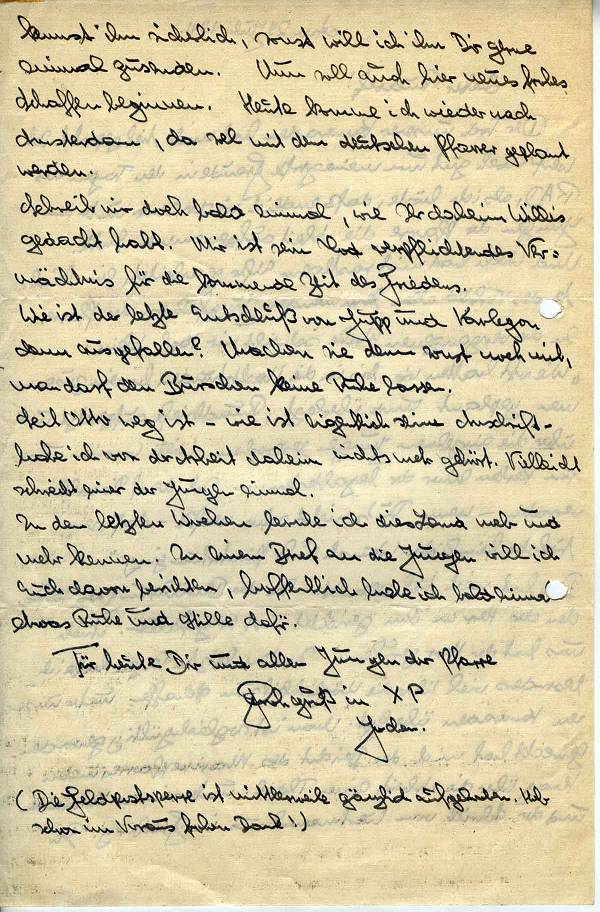 kennst ihn sicherlich, sonst will ich ihn Dir gerne
einmal zusenden. Nun soll auch hier neues frohes
Schaffen beginnen. Heute komme ich wieder nach
Amsterdam, da soll mit dem deutschen Pfarrer geplant
werden.
Schreib mir doch bald einmal, wie Ihr daheim Willis
gedacht habt. Mir ist sein Tod verpflichtendes Ver=
mächtnis für die kommende Zeit des Friedens.
Wie ist der letzte Entschluß von Jupp und
dann ausgefallen? Machen sie denn sonst noch mit,
man darf den Burschen keine Ruhe lassen.
Seit Otto weg ist – wie ist eigentlich seine Anschrift –
habe ich von der Arbeit daheim nichts mehr gehört. Vielleicht
schreibt einer der Jungen einmal.
In den letzten Wochen lernte ich dies Land mehr und
mehr kennen. In einem Brief an die Jungen will ich
Euch davon berichten, hoffentlich habe ich bald einmal
etwas Ruhe und Stille dafür.
Für heute Dir und allen Jungen der Pfarre
Frohgruß in XP
(Die Feldpostsperre ist mittlerweile gänzlich aufgehoben. Hab
schon im Voraus frohen Dank!)